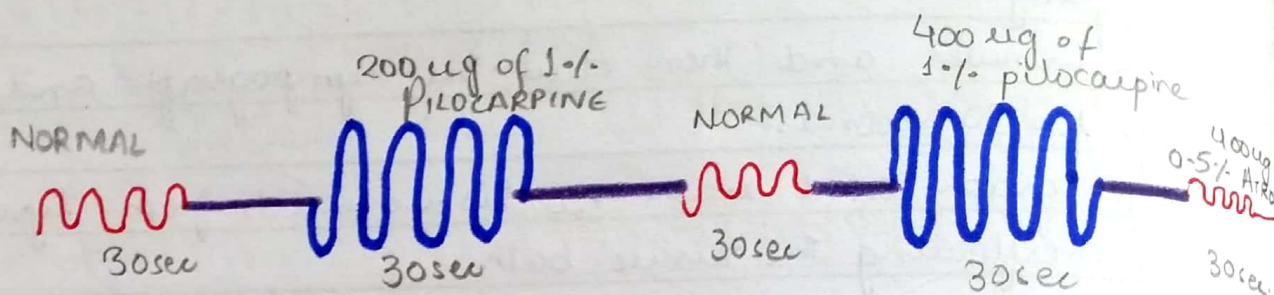 NORMAL
30sec
200 ug of 1%
PILOCARPINE
30sec
NORMAL
30sec
400 ug of
1% pilocarpine
30sec
400ug
0.5%
30sec.